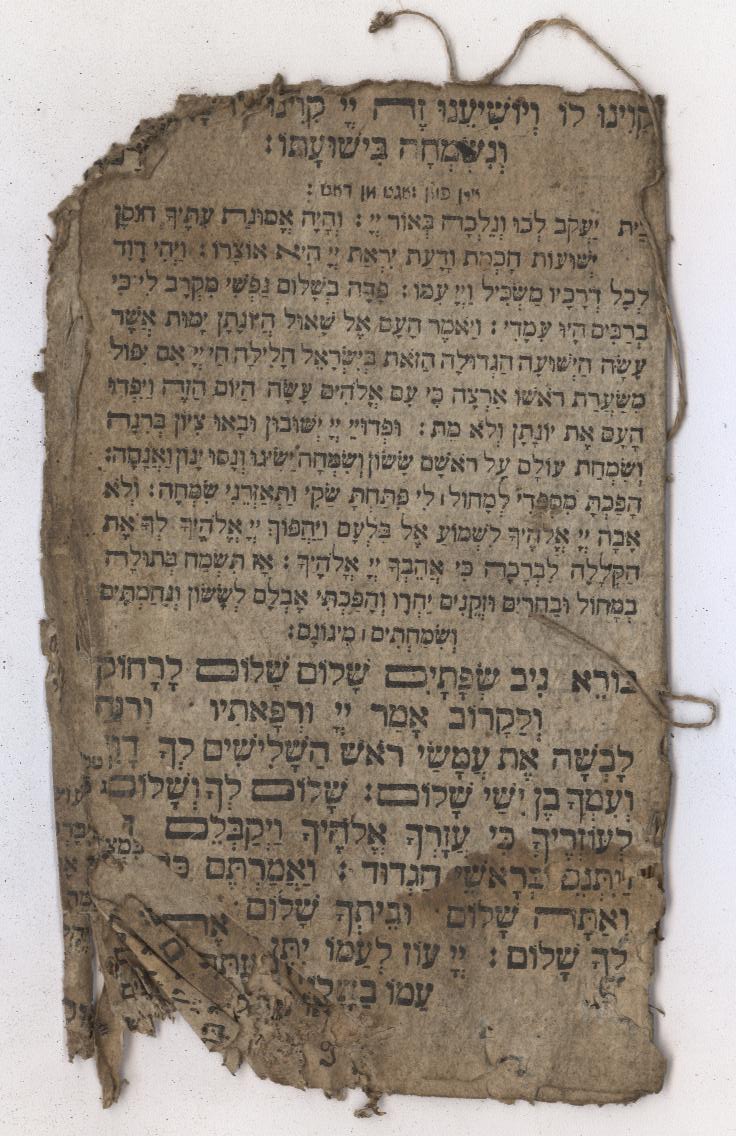 קִוִּינוּ לוֹ וְיוֹשִׁיעֵנוּ זֶה יְיָ קִוִּינוּ לוֹ
וְנִשְׂמְחָה בִּישׁוּעָתוֹ:
בֵּית יַעֲקֹב לְכוּ וְנֵלְכָה בְּאוֹר יְיָ: וְהָיָה אֱמוּנַת עִתֶּיךָ חוֹסֶן
יְשׁוּעוֹת חָכְמַת וָדָעַת יִרְאַת יְיָ הִיא אוֹצָרוֹ: וַיְהִי דָוִד
לְכָל דְּרָכָיו מַשְׂכִּיל וַיְיָ עִמּוֹ: פָּדָה בְשָׁלוֹם נַפְשִׁי מִקְּרָב לִי כִּי
בְרַבִּים הָיוּ עִמָּדִי: וַיֹּאמֶר הָעָם אֶל שָׁאוּל הֲיוֹנָתָן יָמוּת אֲשֶׁר
עָשָׂה הַיְשׁוּעָה הַגְּדוֹלָה הַזֹּאת בְּיִשְׂרָאֵל חָלִילָה חַי יְיָ אִם יִפּוֹל
מִשַּׂעֲרַת רֹאשׁוֹ אַרְצָה כִּי עִם אֱלֹהִים עָשָׂה הַיּוֹם הַזֶּה וַיִּפְדּוּ
הָעָם אֶת יוֹנָתָן וְלֹא מֵת: וּפְדוּיֵי יְיָ יְשׁוּבוּן וּבָאוּ צִיּוֹן בְּרִנָּה
וְשִׂמְחַת עוֹלָם עַל רֹאשָׁם שָׂשׂוֹן וְשִׂמְחָה יַשִּׂיגוּ וְנָסוּ יָגוֹן וַאֲנָחָה:
הָפַכְתָּ מִסְפְּדִי לְמָחוֹל לִי פִּתַּחְתָּ שַׂקִּי וַתְּאַזְּרֵנִי שִׂמְחָה: וְלֹא
אָבָה יְיָ אֱלֹהֶיךָ לִשְׁמוֹעַ אֶל בִּלְעָם וַיַּהֲפוֹךְ יְיָ אֱלֹהֶיךָ לְךָ אֶת
הַקְּלָלָה לִבְרָכָה כִּי אֲהֵבְךָ יְיָ אֱלֹהֶיךָ: אָז תִּשְׂמַח בְּתוּלָה
בְּמָחוֹל וּבַחֻרִים וּזְקֵנִים יַחְדָּו וְהָפַכְתִּי אֶבְלָם לְשָׂשׂוֹן וְנִחַמְתִּים
וְשִׂמַּחְתִּים מִיגוֹנָם:
בּוֹרֵא נִיב שְׂפָתָיִם שָׁלוֹם שָׁלוֹם לָרָחוֹק
וְלַקָּרוֹב אָמַר יְיָ וּרְפָאתִיו וְרוּחַ
לָבְשָׁה אֶת עֲמָשַׂי רֹאשׁ הַשָּׁלִישִׁים לְךָ דָוִד
וְעִמְּךָ בֶן יִשַׁי שָׁלוֹם: שָׁלוֹם לְךָ וְשָׁלוֹם
לְעוֹזְרֶיךָ כִּי עֲזָרְךָ אֱלֹהֶיךָ וַיְקַבְּלֵם ד
וַיִּתְּנֵם בְּרָאשֵׁי הַגְּדוּד: וַאֲמַרְתֶּם כֹּה
וְאַתָּה שָׁלוֹם וּבֵיתְךָ שָׁלוֹם
לְךָ שָׁלוֹם: יְיָ עוֹז לְעַמּוֹ יִתֵּן
עַמּוֹ בַשָּׁלוֹם